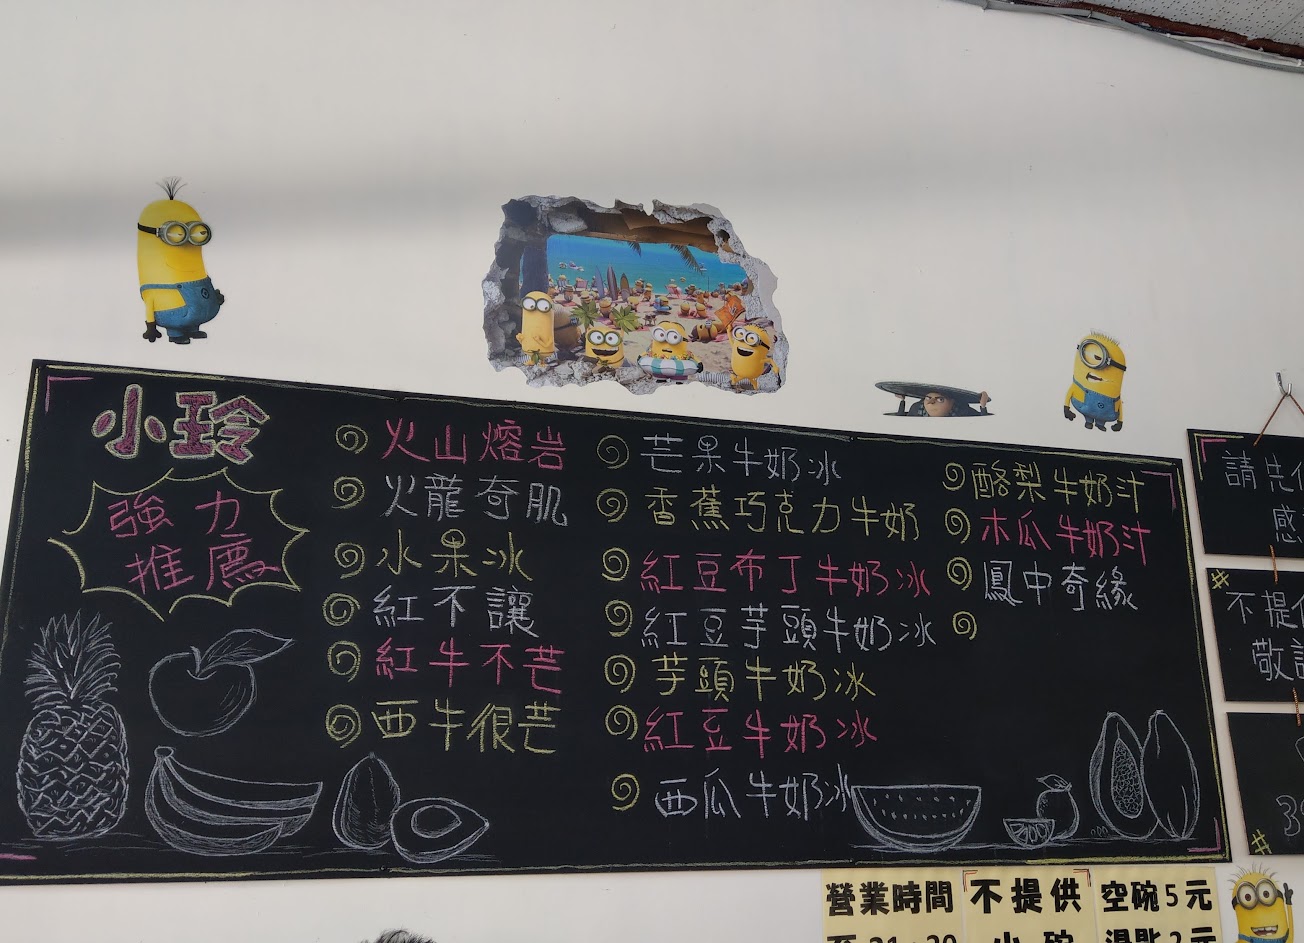 小玲
強力
推薦
火山熔岩
火龍奇肌
水果冰
紅不讓
紅牛不芒
西牛很芒
芒果牛奶冰
香蕉巧克力牛奶
紅豆布丁牛奶冰
紅豆芋頭牛奶冰
芋頭牛奶冰
紅豆牛奶冰
西瓜牛奶冰
酪梨牛奶汁
木瓜牛奶汁
鳳中奇緣
請先
感
不提
敬請
營業時間
不提供
小碗
空碗5元
湯匙2元